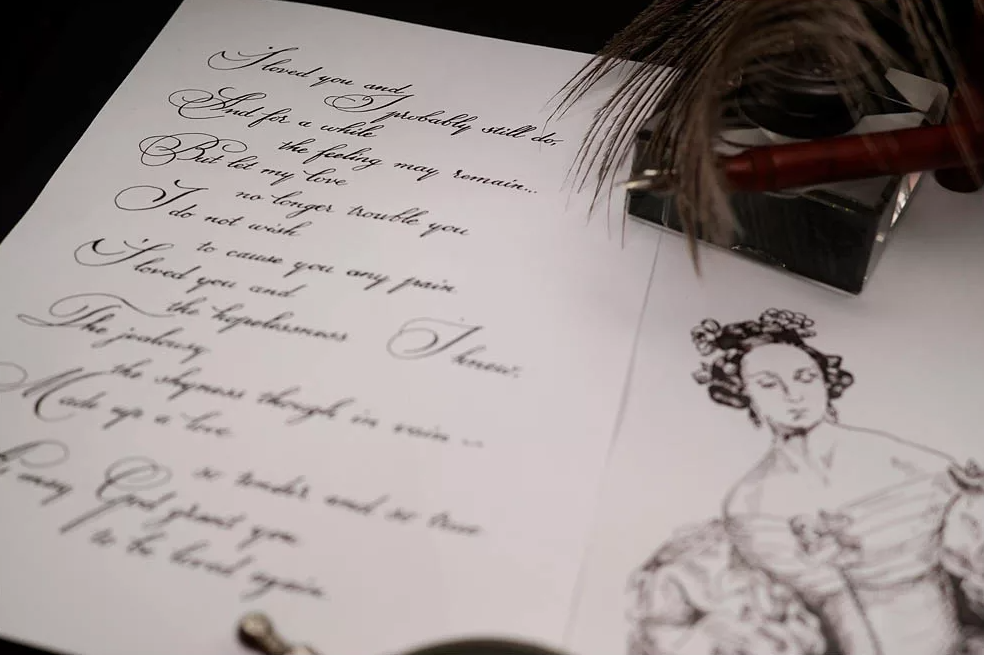 I loved you and
I probably still do,
And for a while
the feeling may remain...
But let my love
no longer trouble you
I do not wish
to cause you any pain.
I loved you and
the hopelessness I knew.
The jealousy
the shyness though in vain ...
Made up a love
so tender and so true
As may God grant you
to be loved again